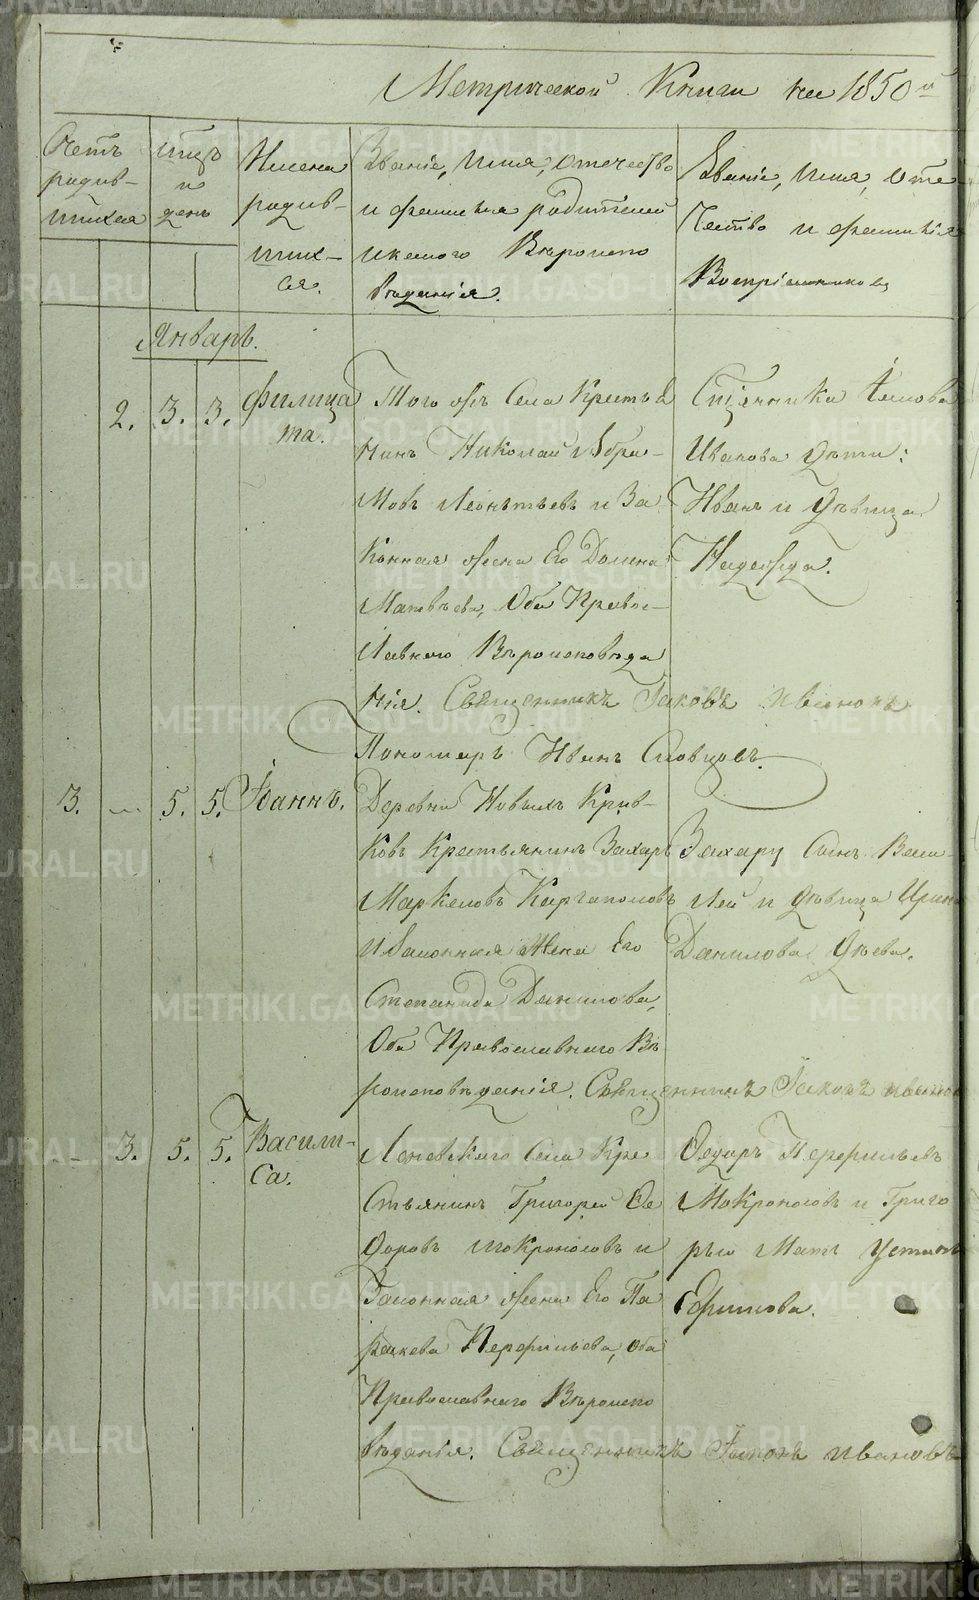 Метрической Книги на 1850й
Счетъ родив-шихся
мцъ и день
Имена родив-шихся.
Званіе, Имя, отечество
и фамилія родителей
и какого Вѣроиспо
вѣданія.
Званіе, Имя, Оте
чество и фамилія
Воспріемниковъ
Январь.
2. 3. 3. Филица
та.
Того жъ Села Крестья
нинъ Николай Абра-
мовъ Леонтьевъ и За
конная жена Его Домна
Матвѣева, Оба Право-
славнаго Вѣроисповѣда
нія. Священникъ Іаковъ Ивановъ
Пономарь Иванъ Словцовъ.
Сщенника Іакова
Иванова дѣти:
Иванъ и дѣвица
Надежда.
3. — 5. 5. Іоаннъ.
Деревни Новыхъ Крив-
ковъ Крестьянинъ Захаръ
Маркеловъ Каргаполовъ
и Законная Жена Его
Степанида Данилова,
Оба Православнаго Вѣ
роисповѣданія. Священникъ Іаковъ Ивановъ
Захару Сынъ Васи-
лей и дѣвица Ирина
Данилова Дѣева.
— 3. 5. 5. Васили-
са.
Села Кре
стьянинъ Григорей Ѳе
доровъ Мокроносовъ и
Законная жена Его Па
раскева Перфильева, оба
Православнаго Вѣроиспо
вѣданія. Священникъ Іаковъ Ивановъ
Ѳедоръ Перфильевъ
Мокроносовъ и Григо
рью Мать Устинья
Ефимова.
METRIKI.GASO-URAL.RU